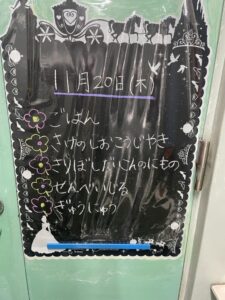 11月20日(木)
ごはん
さけのしおこうじやき
きりぼしだいこんのにもの
せんべいじる
ぎゅうにゅう